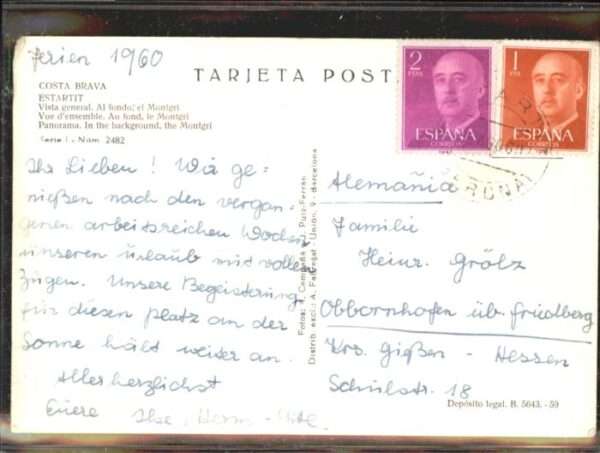 Ferien 1960
TARJETA POST
COSTA BRAVA
ESTARTIT
Vista general. Al fondo, el Montgri
Vue d'ensemble. Au fond, le Montgri
Panorama. In the background, the Montgri
Serie I - Núm. 2482
Ihr Lieben! Wir ge-
nießen nach den vergan-
genen arbeitsreichen Wochen
unseren Urlaub mit vollen
Zügen. Unsere Begeisterung
für diesen Platz an der
Sonne hält weiter an.
Allerherzlichst
Euere Ilse, Herm
Fotos: J. Campañá y J. Puig-Ferrán
Distrib. excl.: A. Fabregat - Unión, 9 - Barcelona
2
PTAS
ESPAÑA
CORREOS
1
PTA
ESPAÑA
CORREOS
Alemañia
Familie
Heinr. Grölz
Obbornhofen üb. Friedberg
Krs. Gießen - Hessen
Schulstr. 18
Depósito legal. B. 5643. - 59